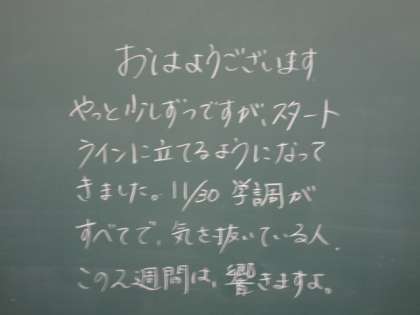 おはようございます
やっと少しずつですが、スタート
ラインに立てるようになって
きました。11/30 学調が
すべてで、気を抜いている人、
この2週間は、響きますよ。